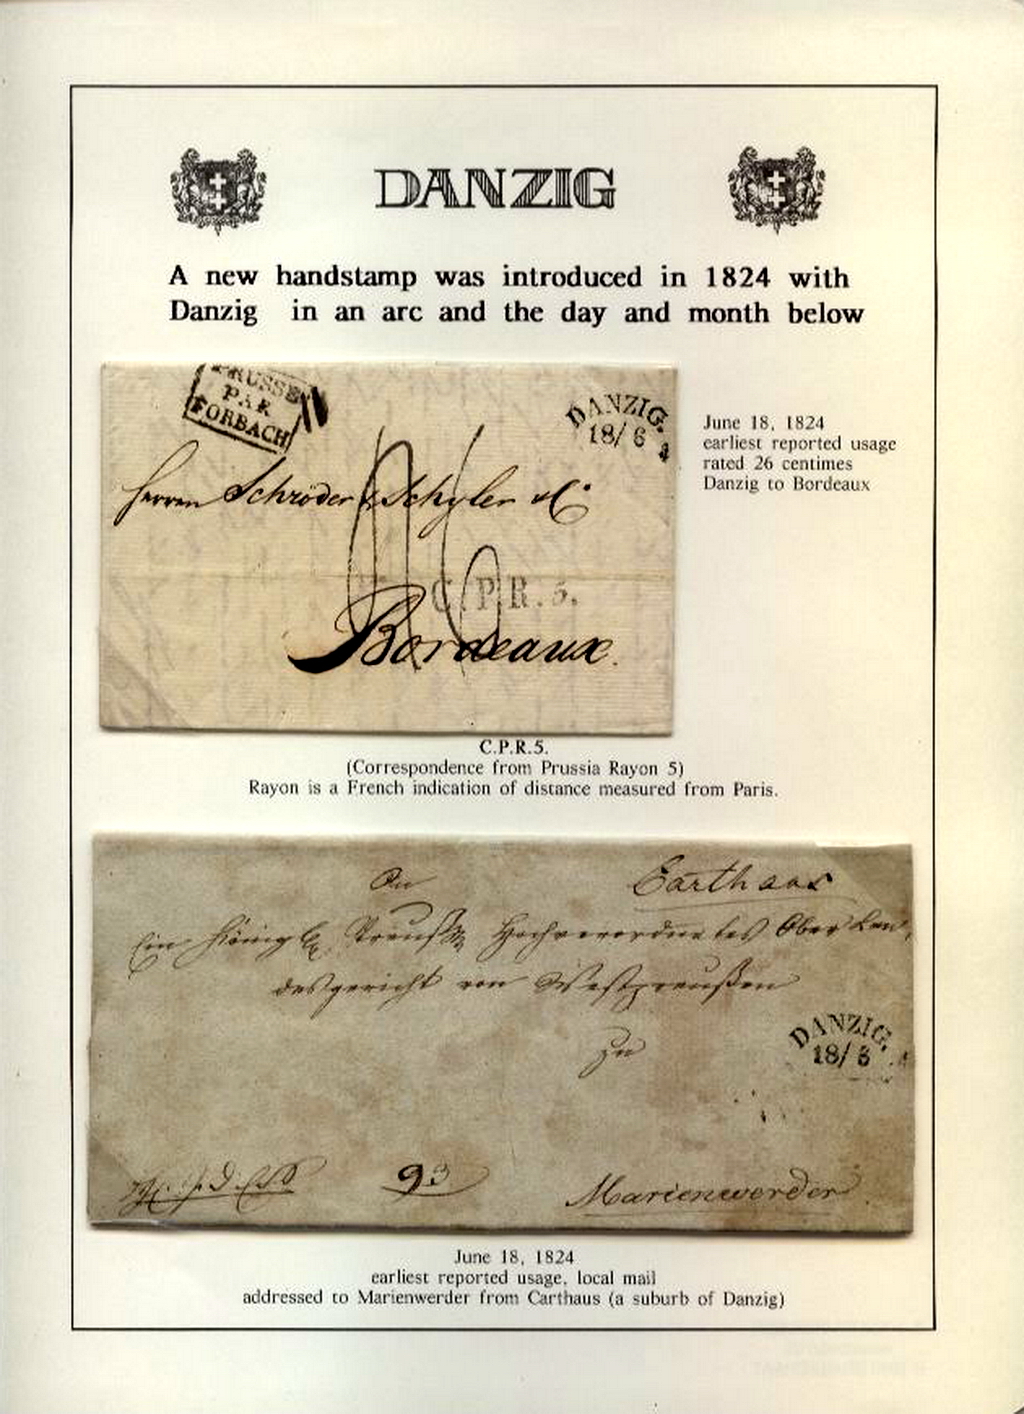 DANZIG
A new handstamp was introduced in 1824 with
Danzig in an arc and the day and month below
PRUSSE
PAR
FORBACH
DANZIG.
18/6
Herren Schröder & Schyler & C.
C.P.R.5.
Bordeaux.
June 18, 1824
earliest reported usage
rated 26 centimes
Danzig to Bordeaux
C.P.R.5.
(Correspondence from Prussia Rayon 5)
Rayon is a French indication of distance measured from Paris.
An
Carthaus
Ein Königl. Preuß. Hochverordnetes Ober Lan-
desgericht von Westpreußen
zu
DANZIG.
18/6
93
Marienwerder
June 18, 1824
earliest reported usage, local mail
addressed to Marienwerder from Carthaus (a suburb of Danzig)